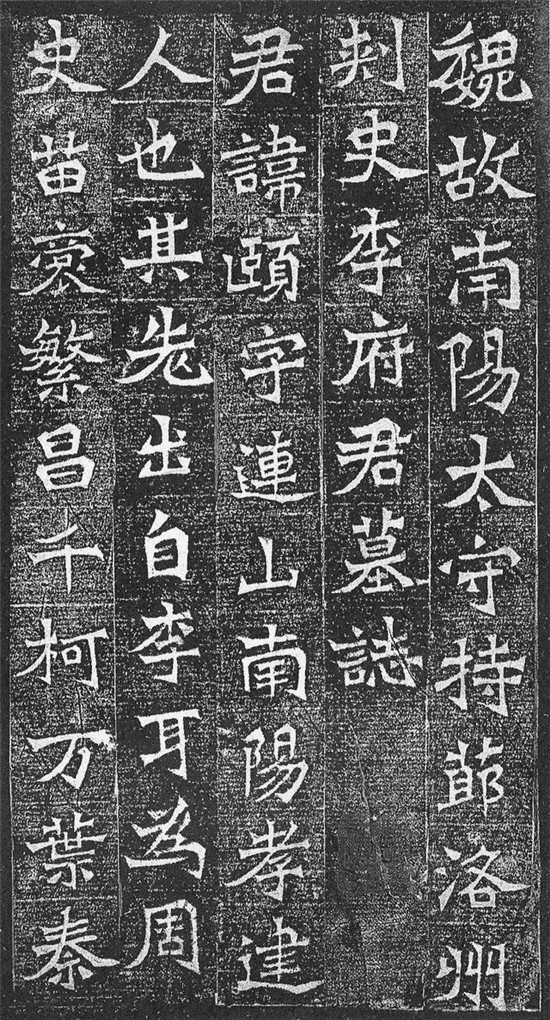 魏故南陽太守持節洛州
刾史李府君墓誌
君諱頤字連山南陽孝建
人也其先出自李耳為周
史苗裔繁昌千柯万葉秦